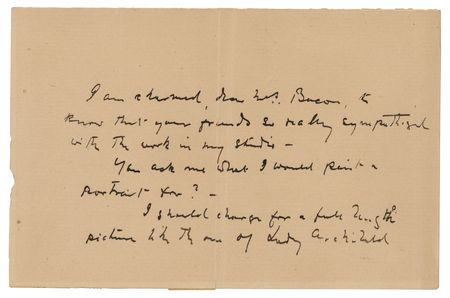 I am charmed, dear Mrs. Bacon, to
know that your friends so really sympathized
with the work in my studio –
You ask me what I would paint a
portrait for? –
I should charge for a full length
picture like the one of Lady Archibald